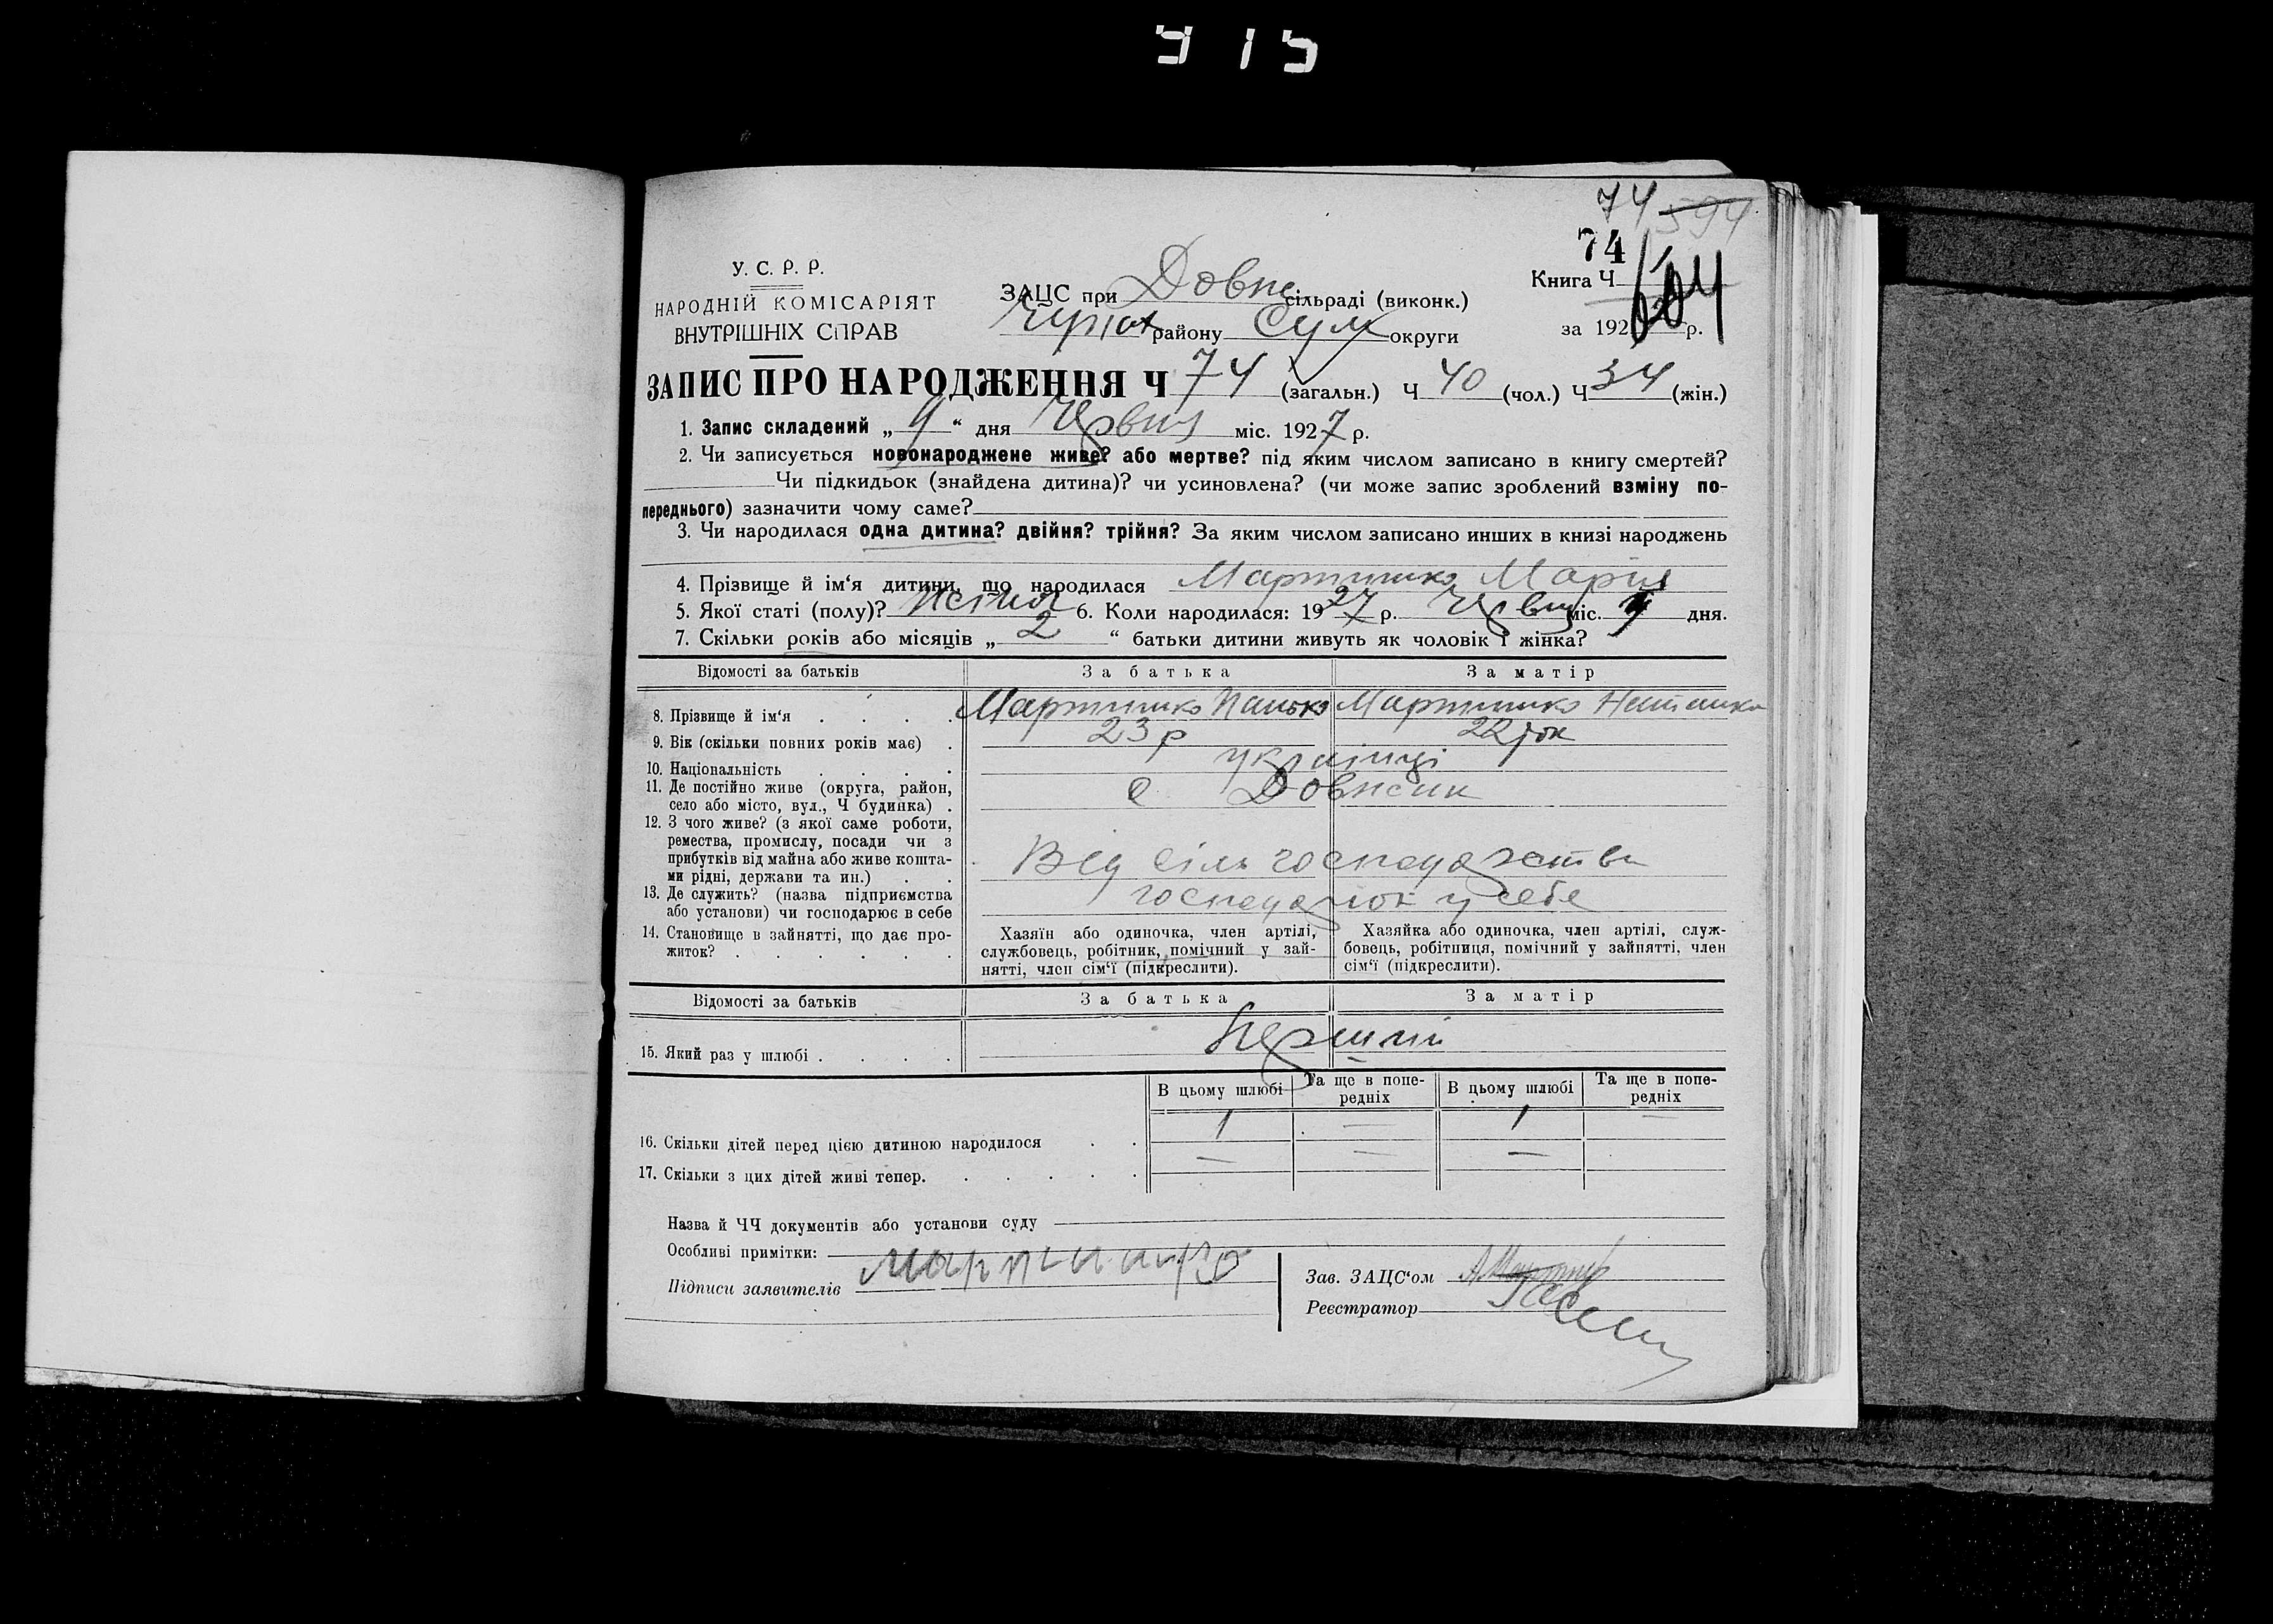 915
74 594
74
У. С. Р. Р.
НАРОДНІЙ КОМІСАРІЯТ
ВНУТРІШНІХ СПРАВ
ЗАЦС при Довж сільраді (виконк.)
району Сум округи
Книга Ч 604
за 192 р.
ЗАПИС ПРО НАРОДЖЕННЯ Ч 74 (загальн.) Ч 40 (чол.) Ч 34 (жін.)
1. Запис складений „ 9 “ дня Червня міс. 1927 р.
2. Чи записується новонароджене живе? або мертве? під яким числом записано в книгу смертей?
Чи підкидьок (знайдена дитина)? чи усиновлена? (чи може запис зроблений взміну по-
переднього) зазначити чому саме?
3. Чи народилася одна дитина? двійня? трійня? За яким числом записано инших в книзі народжень
4. Прізвище й ім‘я дитини, що народилася Мартишко Марія
5. Якої статі (полу)? жіноч 6. Коли народилася: 1927 р. Червня міс. дня.
7. Скільки років або місяців „ 2 “ батьки дитини живуть як чоловік і жінка?
Відомості за батьків За батька За матір
8. Прізвище й ім‘я Мартишко Панько Мартишко
9. Вік (скільки повних років має) 23 р 22 рок
10. Національність українці
11. Де постійно живе (округа, район,
село або місто, вул., Ч будинка) с Довжик
12. З чого живе? (з якої саме роботи,
ремества, промислу, посади чи з
прибутків від майна або живе кошта-
ми рідні, держави та ин.) Від сіль господарства
13. Де служить? (назва підприємства
або установи) чи господарює в себе у себе
14. Становище в зайнятті, що дає про-
житок?
Хазяїн або одиночка, член артілі,
службовець, робітник, помічний у зай-
нятті, член сім‘ї (підкреслити).
Хазяйка або одиночка, член артілі, служ-
бовець, робітниця, помічний у зайнятті, член
сім‘ї (підкреслити).
Відомості за батьків За батька За матір
15. Який раз у шлюбі Перший
В цьому шлюбі Та ще в попе-
редніх В цьому шлюбі Та ще в попе-
редніх
16. Скільки дітей перед цією дитиною народилося 1 — 1 —
17. Скільки з цих дітей живі тепер. — — —
Назва й ЧЧ документів або установи суду
Особливі примітки:
Підписи заявителів
Зав. ЗАЦС‘ом
Реєстратор